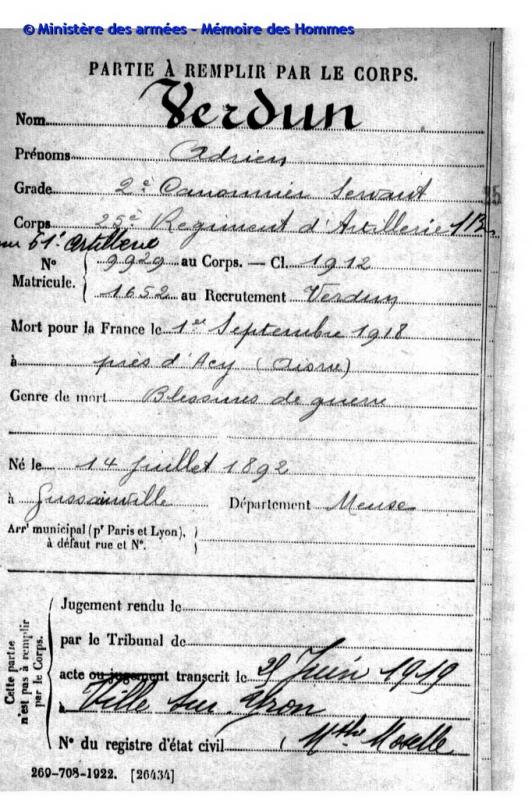 © Ministère des armées - Mémoire des Hommes
PARTIE À REMPLIR PAR LE CORPS.
Nom Verdun
Prénoms Adrien
Grade 2e Canonnier Servant
Corps 25e Régiment d'Artillerie
51e Artillerie
N° 9929 au Corps. — Cl. 1912
Matricule. 1652 au Recrutement Verdun
Mort pour la France le 1er Septembre 1918
à près d'Acy (Aisne)
Genre de mort Blessures de guerre
Né le 14 Juillet 1892
à Jussainville Département Meuse
Arrt municipal (pr Paris et Lyon),
à défaut rue et N°.
Cette partie
n'est pas à remplir
par le Corps.
Jugement rendu le
par le Tribunal de
acte ou jugement transcrit le Juin 1919
à Ville sur Yron
N° du registre d'état civil Mthe Moselle
269-708-1922. [26434]